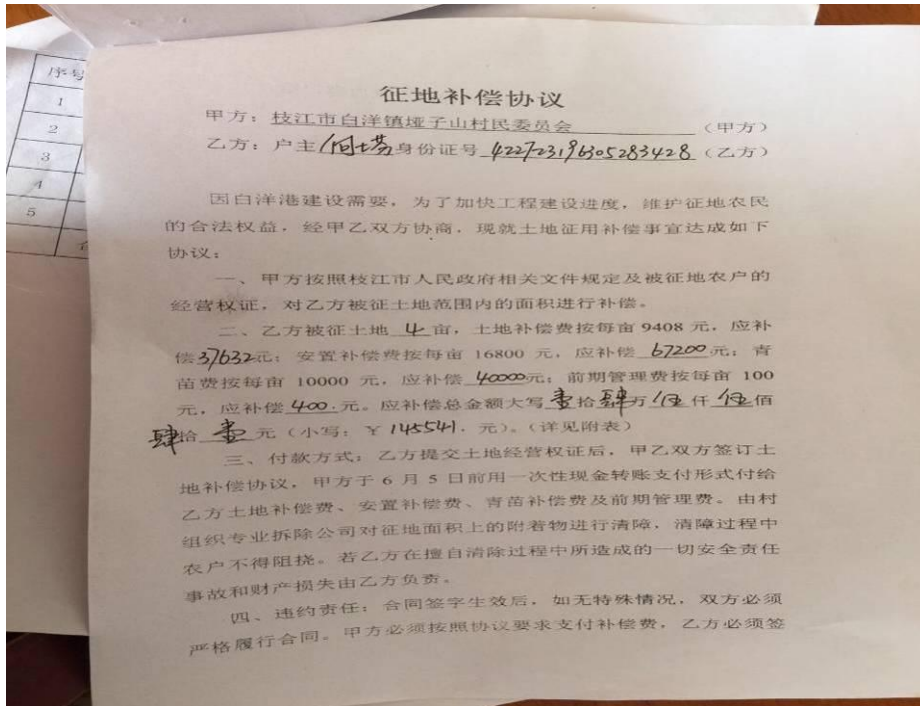 序号
1
2
3
4
5
征地补偿协议
甲方：枝江市白洋镇垭子山村民委员会（甲方）
乙方：户主 身份证号 422723196305283428（乙方）
因白洋港建设需要，为了加快工程建设进度，维护征地农民
的合法权益，经甲乙双方协商，现就土地征用补偿事宜达成如下
协议：
一、甲方按照枝江市人民政府相关文件规定及被征地农户的
经营权证，对乙方被征土地范围内的面积进行补偿。
二、乙方被征土地 4 亩，土地补偿费按每亩 9408 元，应补
偿37632元；安置补偿费按每亩 16800 元，应补偿 67200元；青
苗费按每亩 10000 元，应补偿 40000元；前期管理费按每亩 100
元，应补偿 400.元。应补偿总金额大写壹拾肆万伍仟伍佰
肆拾壹元（小写：￥145541.元）。（详见附表）
三、付款方式：乙方提交土地经营权证后，甲乙双方签订土
地补偿协议，甲方于 6 月 5 日前用一次性现金转账支付形式付给
乙方土地补偿费、安置补偿费、青苗补偿费及前期管理费。由村
组织专业拆除公司对征地面积上的附着物进行清障，清障过程中
农户不得阻挠。若乙方在擅自清除过程中所造成的一切安全责任
事故和财产损失由乙方负责。
四、违约责任：合同签字生效后，如无特殊情况，双方必须
严格履行合同。甲方必须按照协议要求支付补偿费，乙方必须签